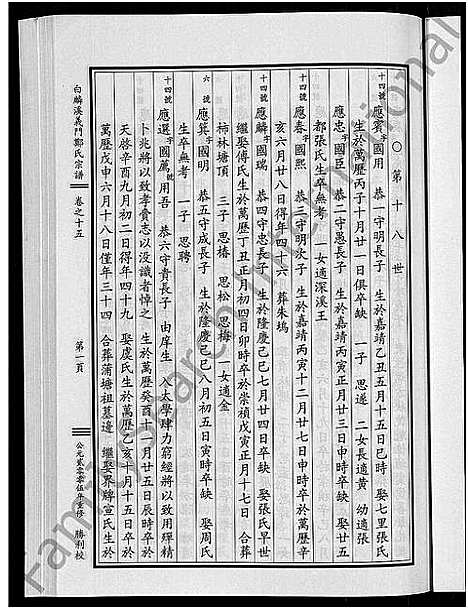 〇第十八世
十四號 應賓字國用 恭一守明長子 生於嘉靖乙丑五月十五日巳時 娶七里張氏
生於萬曆丙子十月廿一日俱卒缺 一子 思遂 二女長適黄 幼適張
應忠字國臣 恭二守愚長子 生於嘉靖丙寅正月廿三日申時卒缺 娶廿五
都張氏生卒無考 一女適深溪王
十四號 應春字國熙 恭三守明次子 生於嘉靖丙寅十二月廿七日申時卒於萬曆辛
亥六月廿八日得年四十六 葬朱塢
十四號 應麟字國瑞 恭四守忠長子 生於隆慶己巳七月廿四日卒缺 娶張氏早世
繼娶傅氏生於萬曆丁丑正月初四日卯時卒於崇禎戊寅正月十七日 合葬
柿林塘頂 三子 思椿 思松 思梅 一女適金
六號 應箕字國明 恭五守成長子 生於隆慶己巳八月初五日寅時卒缺 娶周氏
生卒無考 一子 思聘
十四號 應選字國薦號用吾 恭六守貴長子 由庠生 入太學肆力窮經將以致用殫精
卜兆將以致孝賫志以没識者悼之 生於萬曆癸酉十一月廿五日辰時卒於
天啟辛酉九月初二日得年四十九 娶虞氏生於萬曆乙亥十月十五日卒於
萬曆戊申六月十八日僅年三十四 合葬蒲塘祖墓邊 繼娶界牌宣氏生於
白麟溪義門鄭氏宗譜
卷之十五
第一頁
公元貳零零伍年重修
勝利校